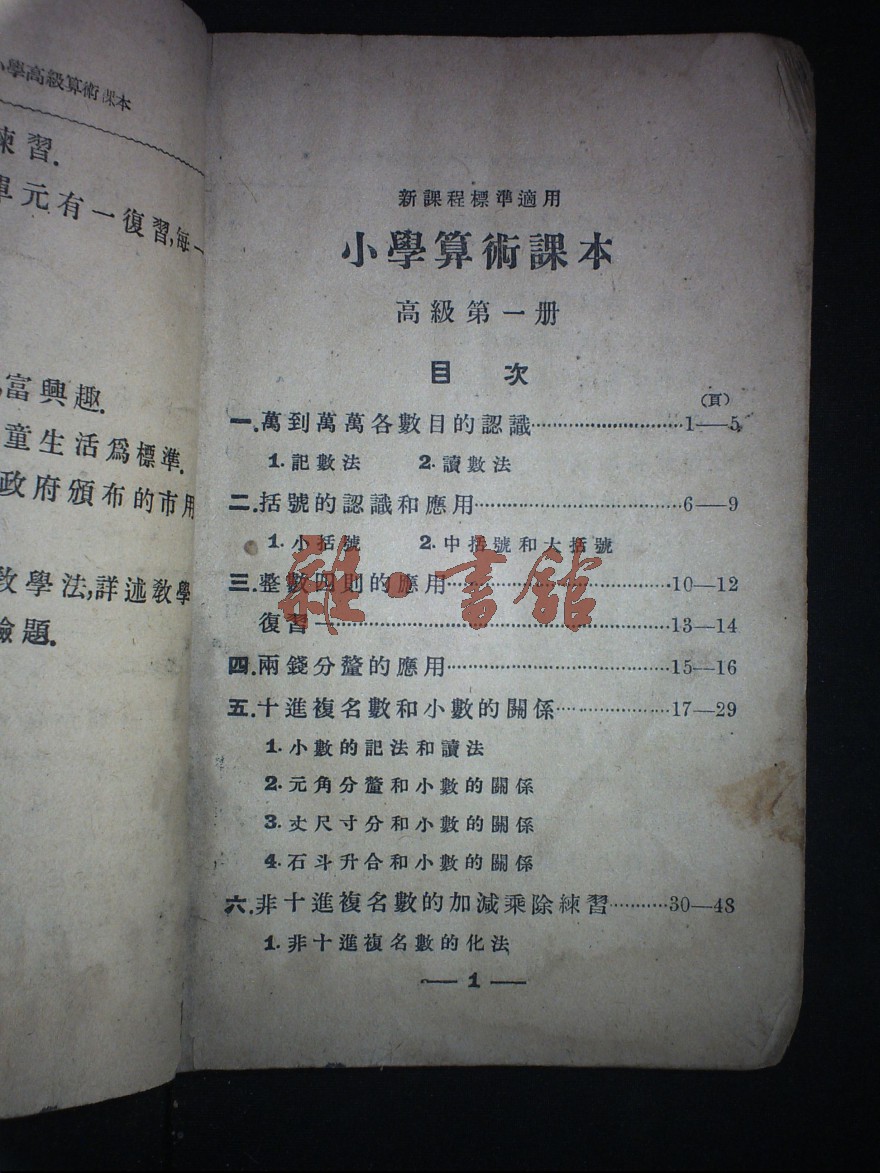 小學高級算術課本
練習.
單元有一復習,每一
富興趣.
童生活爲標準.
政府頒布的市用
敎學法,詳述敎學
驗題.
新課程標準適用
小學算術課本
高級第一册
目次
(頁)
一.萬到萬萬各數目的認識…………1—5
1.記數法 2.讀數法
二.括號的認識和應用…………6—9
1.小括號 2.中括號和大括號
三.整數四則的應用…………10—12
復習一…………13—14
四.兩錢分釐的應用…………15—16
五.十進複名數和小數的關係…………17—29
1.小數的記法和讀法
2.元角分釐和小數的關係
3.丈尺寸分和小數的關係
4.石斗升合和小數的關係
六.非十進複名數的加減乘除練習…………30—48
1.非十進複名數的化法
—1—
雜·書館